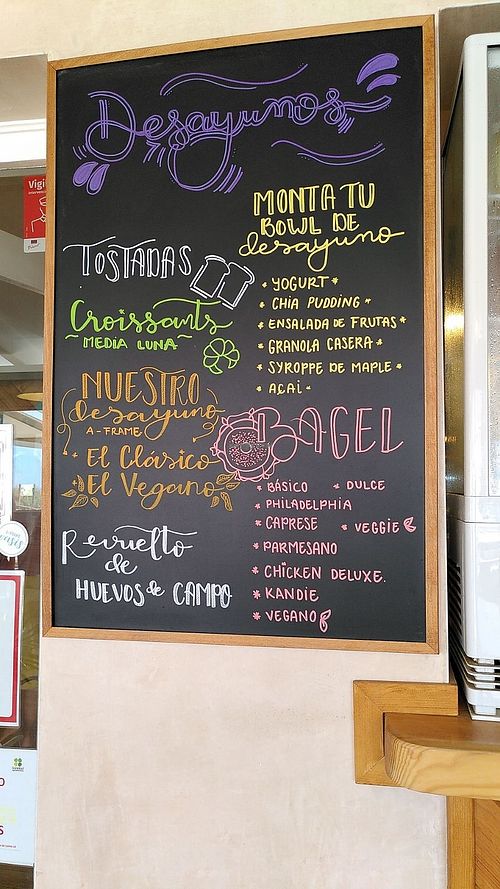 Desayunos
MONTA TU
BOWL DE
desayuno
* YOGURT *
* CHIA PUDDING *
* ENSALADA DE FRUTAS *
* GRANOLA CASERA *
* SYROPPE DE MAPLE *
* AÇAI *
TOSTADAS
Croissants
~ MEDIA LUNA ~
NUESTRO
desayuno
A-FRAME
El Clásico
El Vegano
Revuelto
de
HUEVOS de CAMPO
BAGEL
* BÁSICO * DULCE
* PHILADELPHIA
* CAPRESE * VEGGIE
* PARMESANO
* CHICKEN DELUXE.
* KANDIE
* VEGANO
Vigi